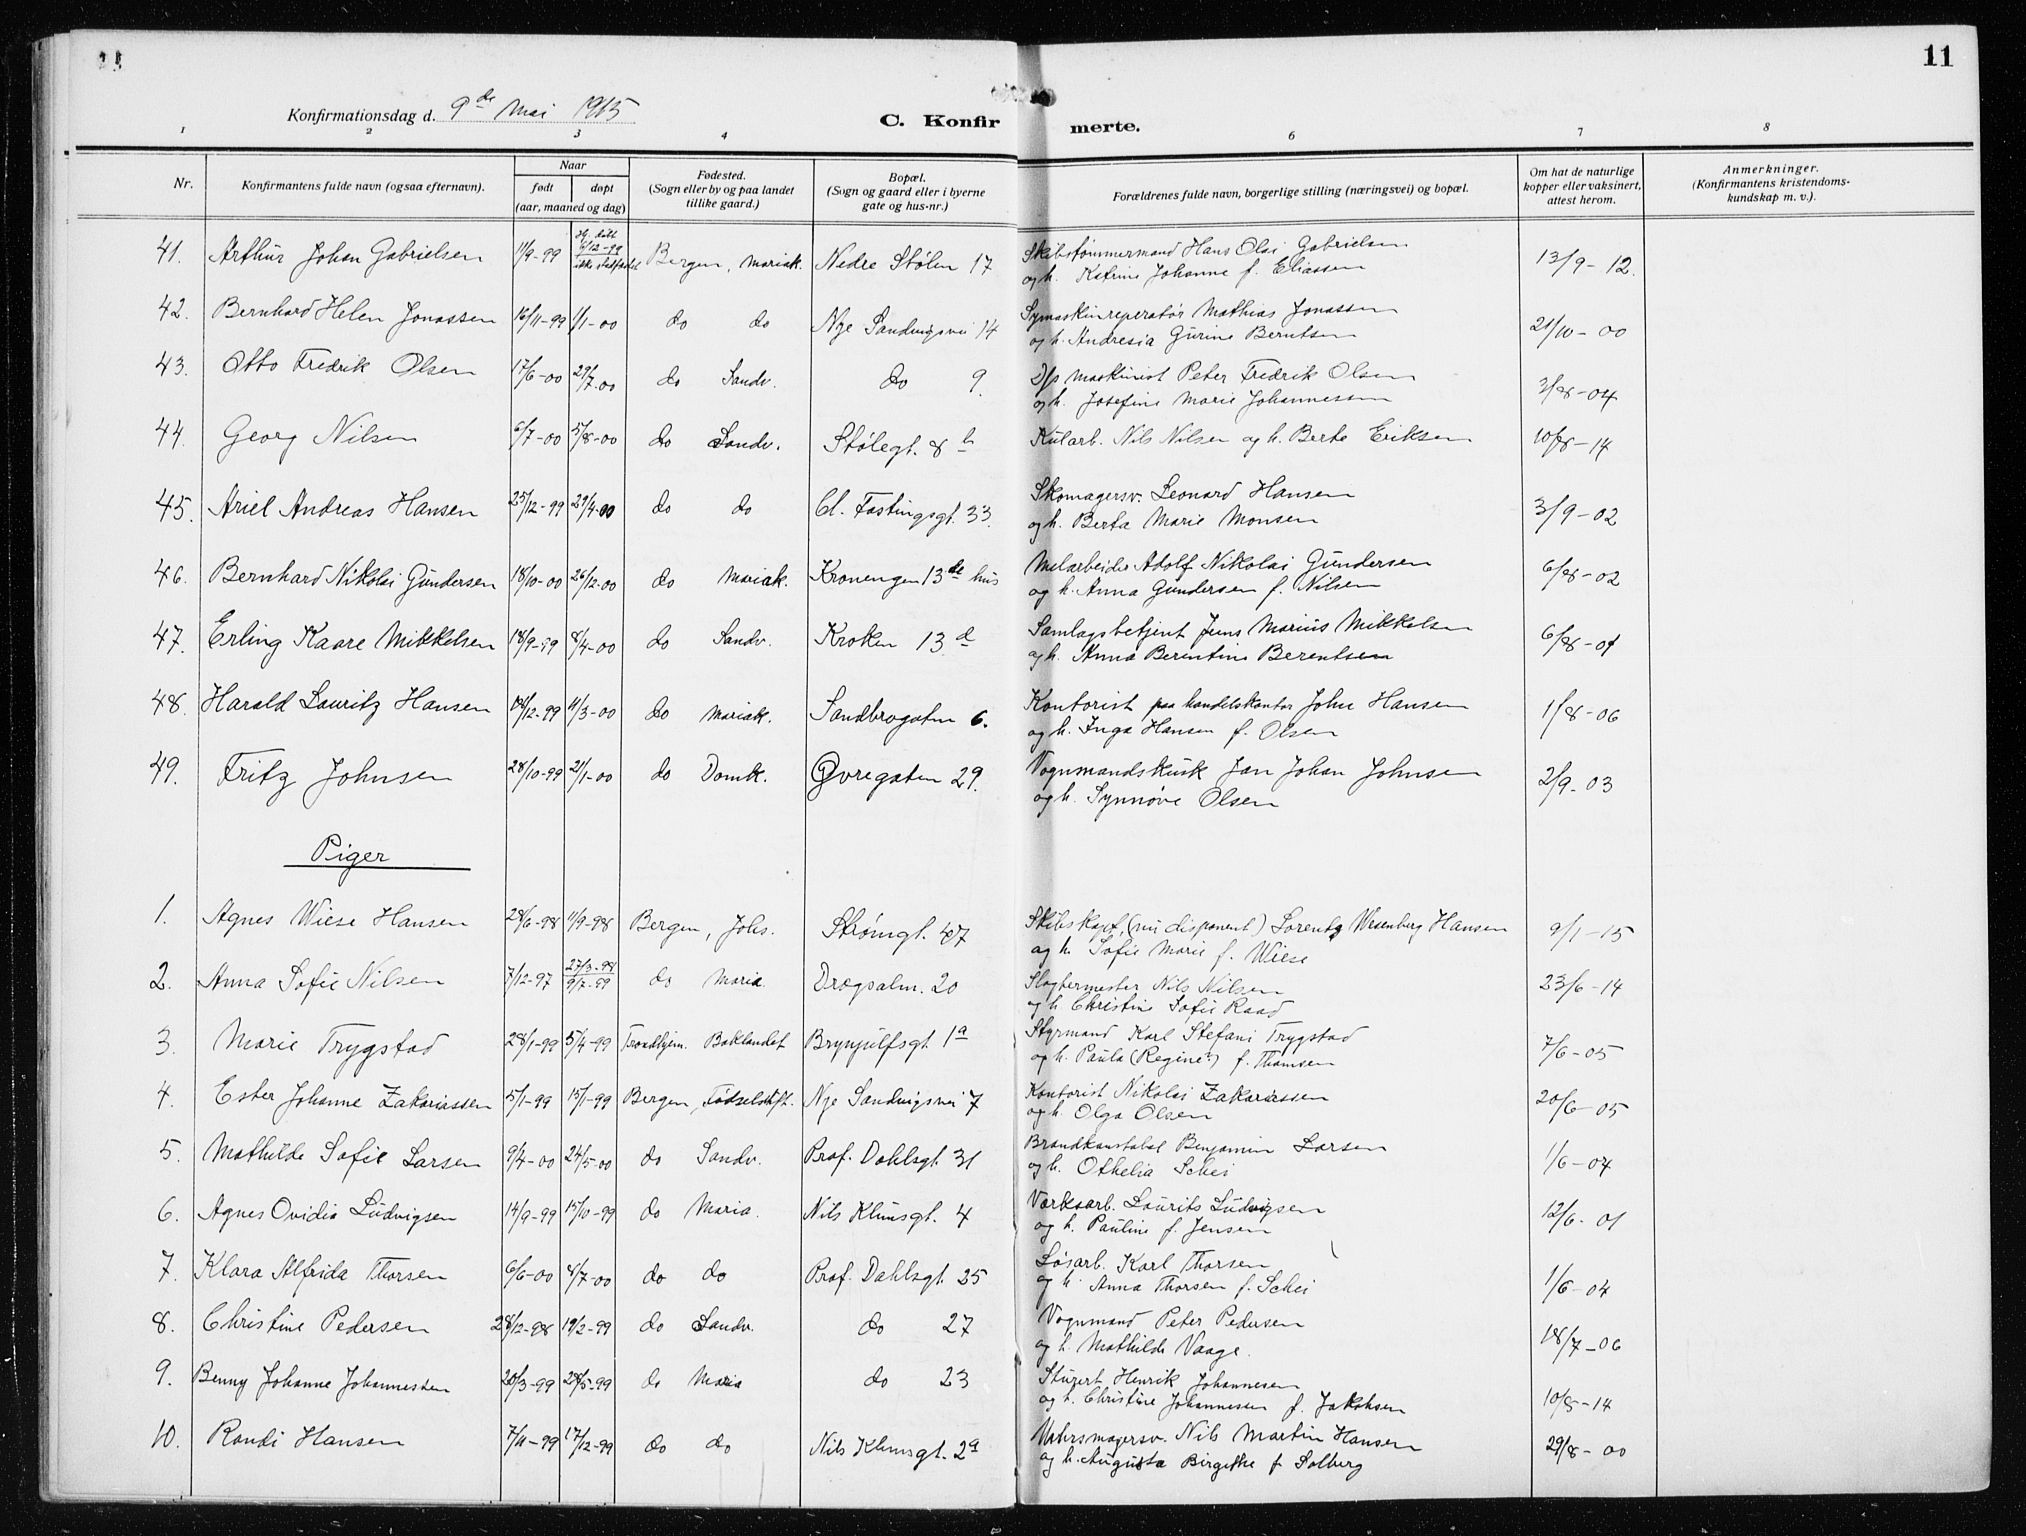 11
Konfirmationsdag d. 9de Mai 1915
C. Konfirmerte.
1 2 3 4 6 7 8
Nr. Konfirmantens fulde navn (ogsaa efternavn). Naar født døpt (aar, maaned og dag) Fødested. (Sogn eller by og paa landet tillike gaard.) Bopæl. (Sogn og gaard eller i byerne gate og hus-nr.) Forældrenes fulde navn, borgerlige stilling (næringsvei) og bopæl. Om hat de naturlige kopper eller vaksinert, attest herom. Anmerkninger. (Konfirmantens kristendoms-kundskap m. v.).
41. Arthur Johan Gabrielsen 11/9-99 6/12-99 Bergen, Mariak. Nedre Stølen 17 Skibstømmermand Hans Olai Gabrielsen 13/9-12.
og h. Katrine Johanne f. Eliassen
42. Bernhard Helen Jonassen 16/11-99 1/1-00 do do Nye Sandvigsvei 14 Symaskinreperatør Mathias Jonassen 21/10-00
og h. Andresia Gurine Berntsen
43. Otto Fredrik Olsen 17/6-00 29/7-00 do Sandv. do 9. D/s maskinist Peter Fredrik Olsen 3/8-04
og h. Josefine Marie Johannessen
44. Georg Nilsen 6/7-00 5/8-00 do Sandv. Stølegt. 8 b Kularb. Nils Nilsen og h. Berte Eriksen 10/8-14
45. Ariel Andreas Hansen 25/12-99 29/4-00 do do Cl. Fastingsgt. 33. Skomagersv. Leonard Hansen 3/9-02
og h. Berta Marie Monsen
46. Bernhard Nikolai Gundersen 18/10-00 26/12-00 do Mariak. Kronengen 13de hus Melarbeider Adolf Nikolai Gundersen 6/8-02
og h. Anna Gundersen f. Nilsen
47. Erling Kaare Mikkelsen 18/9-99 8/4-00 do Sandv. Kroken 13 d Samlagsbetjent Jens Marius Mikkelsen 6/8-01
og h. Anna Berentine Berentsen
48. Harald Lauritz Hansen 12-99 11/3-00 do Mariak. Sandbrogaten 6. Kontorist paa handelskontor John Hansen 1/8-06
og h. Inga Hansen f. Olsen
49. Fritz Johnsen 28/10-99 21/1-00 do Domk. Øvregaten 29. Vognmandskusk Jan Johan Johnsen 2/9-03
og h. Synnøve Olsen
Piger
1. Agnes Wiese Hansen 28/6-98 11/9-98 Bergen, Johs. Strømgt. 47 Skibskapt. (nu disponent) Lorentz Wesenberg Hansen 9/1-15
og h. Sofie Marie f. Wiese
2. Anna Sofie Nilsen 7/12-97 27/3-98 9/7-99 do Maria Dregsalm. 20 Slagtermester Nils Nilsen 23/6-14
og h. Christine Sofie Raad
3. Marie Trygstad 28/1-99 5/4-99 Trondhjem. Baklandet Brynjulfsgt. 1a Styrmand Karl Stefani Trygstad 7/6-05
og h. Paula (Regine?) f. Thomsen
4. Ester Johanne Zakariassen 5/1-99 15/1-99 Bergen, Fødselsstift. Nye Sandvigsvei 7 Kontorist Nikolai Zakariassen 20/6-05
og h. Olga Olsen
5. Mathilde Sofie Larsen 9/4-00 24/5-00 do Sandv. Prof. Dahlsgt. 31 Brandkonstabel Benjamin Larsen 1/6-04
og h. Othelia Schei
6. Agnes Ovidia Ludvigsen 14/9-99 15/10-99 do Maria. Nils Klimsgt. 4 Verksarb. Laurits Ludvigsen 12/6-01
og h. Pauline f. Jensen
7. Klara Alfrida Thorsen 6/6-00 8/7-00 do do Prof. Dahlsgt. 25 Løsarb. Karl Thorsen 1/6-04
og h. Anna Thorsen f. Schei
8. Christine Pedersen 28/12-98 19/2-99 do Sandv. do 27 Vognmand Peter Pedersen 18/7-06
og h. Mathilde Vaage.
9. Benny Johanne Johannessen 20/3-99 28/5-99 do Maria do 23 Stuert Henrik Johannesen 10/8-14
og h. Christine Johannessen f. Jakobsen
10. Randi Hansen 7/11-99 17/12-99 do do Nils Klimsgt. 2a Uhrsmagersv. Nils Martin Hansen 29/8-00
og h. Augusta Birgithe f. Solberg